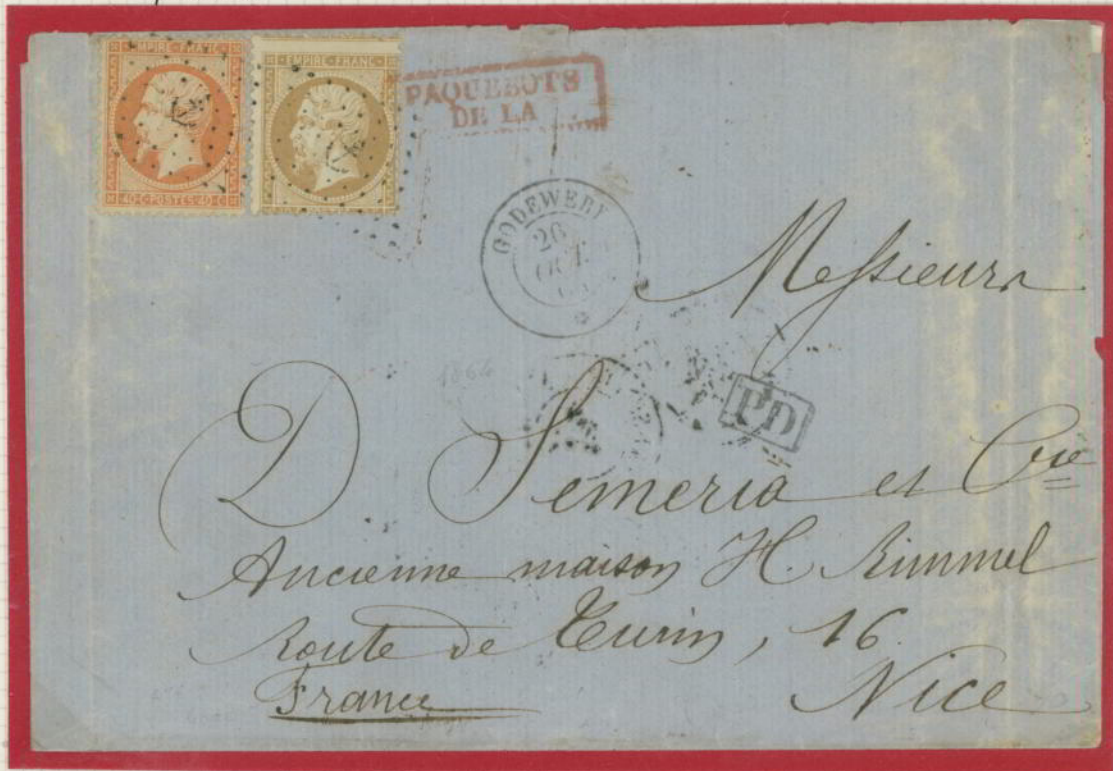 EMPIRE·FRANC·
40·C·POSTES·40·C
EMPIRE·FRANC·
PAQUEBOTS
DE LA
GODEWERF
26
OCT.
1864
PD
Messieurs
D Semeria et Cie
Ancienne maison H. Rimmel
Route de Turin, 16
Nice
France